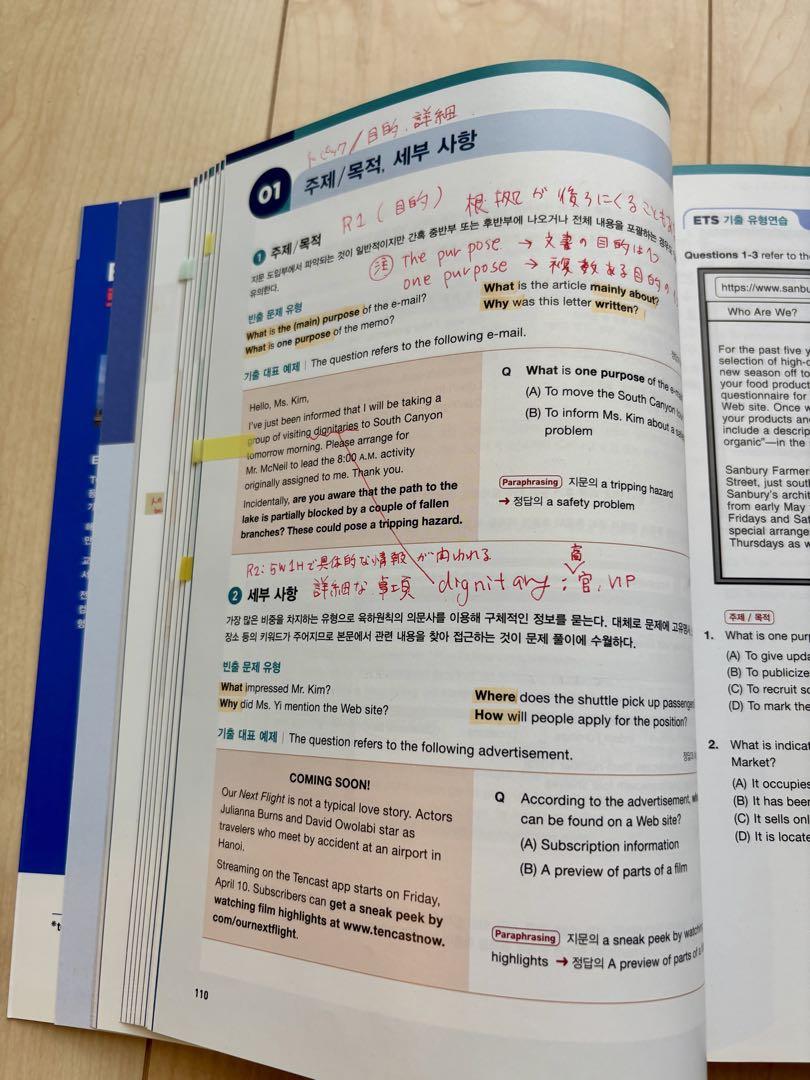 トピック/目的、詳細
01 주제/목적, 세부 사항
R1(目的) 根拠が後ろにくることも
1 주제/목적
지문 도입부에서 파악되는 것이 일반적이지만 간혹 중반부 또는 후반부에 나오거나 전체 내용을 포괄하는 경우
유의한다.
注 the purpose → 文書の目的は1つ
one purpose → 複数ある目的の
빈출 문제 유형
What is the (main) purpose of the e-mail?
What is one purpose of the memo?
What is the article mainly about?
Why was this letter written?
기출 대표 예제 | The question refers to the following e-mail.
Hello, Ms. Kim,
I've just been informed that I will be taking a
group of visiting dignitaries to South Canyon
tomorrow morning. Please arrange for
Mr. McNeil to lead the 8:00 A.M. activity
originally assigned to me. Thank you.
Incidentally, are you aware that the path to the
lake is partially blocked by a couple of fallen
branches? These could pose a tripping hazard.
Q What is one purpose of the e-ma
(A) To move the South Canyon
(B) To inform Ms. Kim about a safe
problem
Paraphrasing 지문의 a tripping hazard
→ 정답의 a safety problem
R2:5W1Hで具体的な情報が問われる
詳細な事項 dignitary : 高官, VIP
2 세부 사항
가장 많은 비중을 차지하는 유형으로 육하원칙의 의문사를 이용해 구체적인 정보를 묻는다. 대체로 문제에 고유명사,
장소 등의 키워드가 주어지므로 본문에서 관련 내용을 찾아 접근하는 것이 문제 풀이에 수월하다.
빈출 문제 유형
What impressed Mr. Kim?
Why did Ms. Yi mention the Web site?
Where does the shuttle pick up passenger
How will people apply for the position?
기출 대표 예제 | The question refers to the following advertisement.
COMING SOON!
Our Next Flight is not a typical love story. Actors
Julianna Burns and David Owolabi star as
travelers who meet by accident at an airport in
Hanoi.
Streaming on the Tencast app starts on Friday,
April 10. Subscribers can get a sneak peek by
watching film highlights at www.tencastnow.
com/ournextflight.
Q According to the advertisement, wh
can be found on a Web site?
(A) Subscription information
(B) A preview of parts of a film
Paraphrasing 지문의 a sneak peek by watching
highlights → 정답의 A preview of parts of a
110
ETS 기출 유형연습
Questions 1-3 refer to the
https://www.sanbu
Who Are We?
For the past five y
selection of high-q
new season off to
your food product
questionnaire for
Web site. Once w
your products and
include a descrip
organic"—in the
Sanbury Farmer
Street, just sout
Sanbury's archit
from early May
Fridays and Sat
special arrange
Thursdays as w
주제 / 목적
1. What is one purp
(A) To give upda
(B) To publicize
(C) To recruit so
(D) To mark the
2. What is indicat
Market?
(A) It occupies
(B) It has been
(C) It sells onl
(D) It is locate